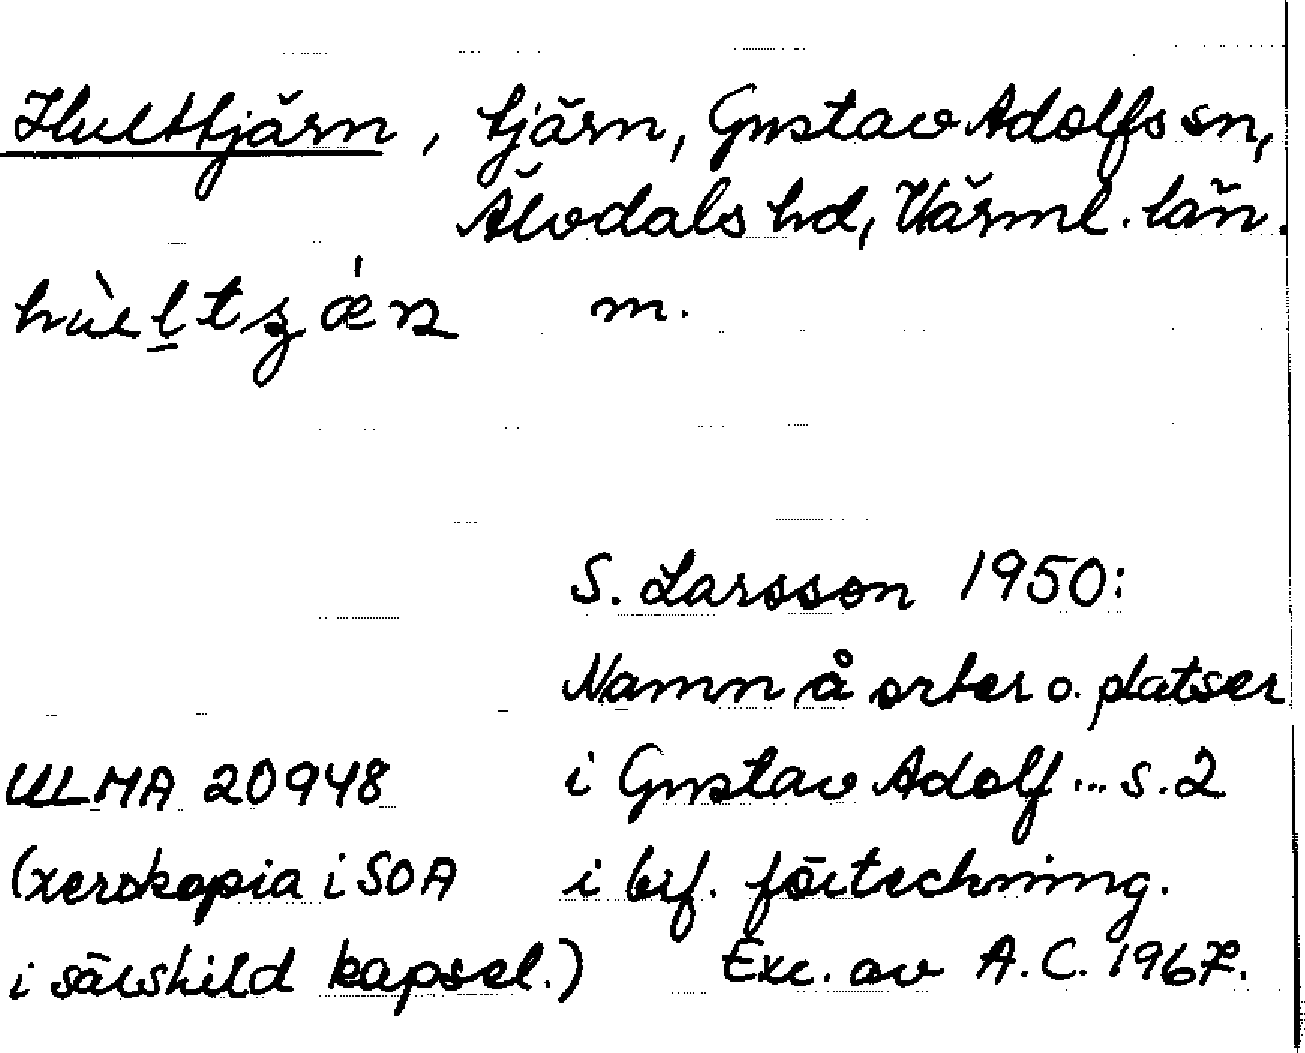 Hulttjärn, tjärn, Gustav Adolfs sn,
Älvdals hd, Värml. län.
m.
S. Larsson 1950:
Namn å orter o. platser
i Gustav Adolf ... s. 2
i brf. förteckning.
ULMA 20948
(xerokopia i SOA
i särskild kapsel.)
Exc. av A.C. 1967.